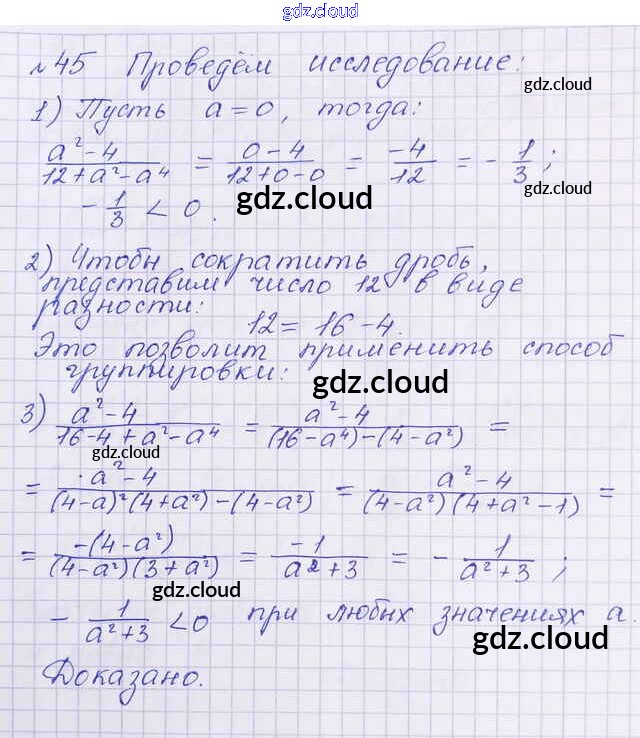 gdz.cloud
№45 Проведём исследование:
gdz.cloud
1) Пусть a=0, тогда:
(a²-4)/(12+a²-a⁴) = (0-4)/(12+0-0) = -4/12 = -1/3;
gdz.cloud
-1/3 < 0.
gdz.cloud
2) Чтобы сократить дробь,
представим число 12 в виде
разности:
12 = 16-4.
Это позволит применить способ
группировки:
gdz.cloud
3) (a²-4)/(16-4+a²-a⁴) = (a²-4)/((16-a⁴)-(4-a²)) =
gdz.cloud
= (a²-4)/((4-a)²(4+a²)-(4-a²)) = (a²-4)/((4-a²)(4+a²-1)) =
= -(4-a²)/((4-a²)(3+a²)) = -1/(a²+3) = -1/(a²+3);
gdz.cloud gdz.cloud
-1/(a²+3) < 0 при любых значениях a.
gdz.cloud
Доказано.